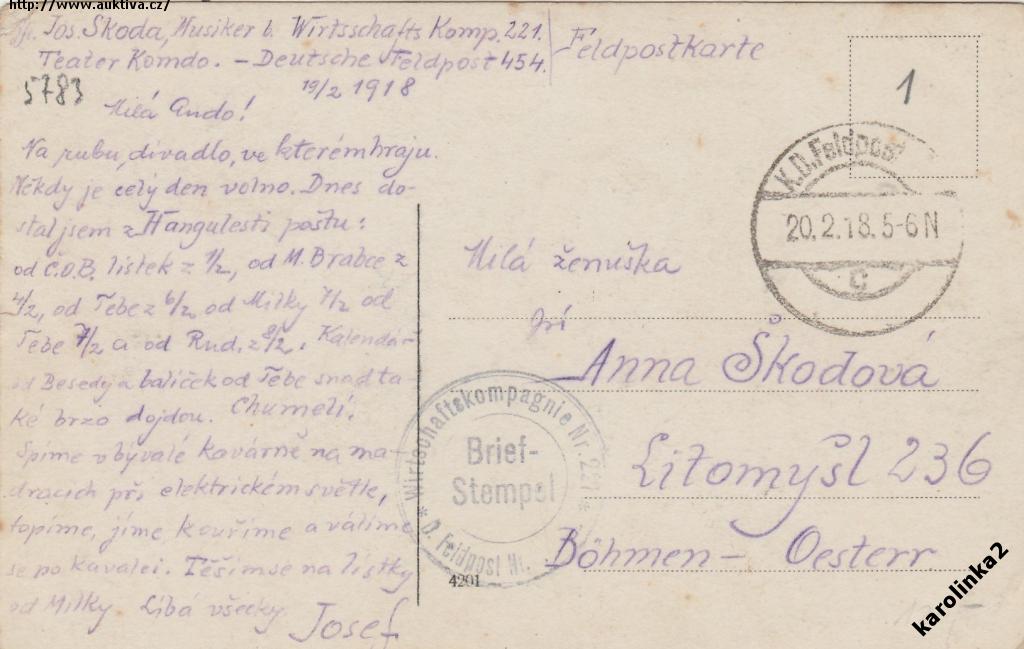 http://www.auktiva.cz/
Jos. Škoda, Musiker b. Wirtsschafts Komp. 221.
Teater Komdo. – Deutsche Feldpost 454.
Feldpostkarte
1
5783
19/2 1918
Milá Ando!
Na rubu, divadlo, ve kterém hraju.
Někdy je celý den volno. Dnes do-
stal jsem z Hangulesti poštu:
od Č.O.B. lístek z 1/2, od M. Brabce z
4/2, od Tebe z 6/2, od Milky 7/2 od
Tebe 7/2 a od Rud. z 8/2. Kalendář
od Besedy a balíček od Tebe snad ta-
ké brzo dojdou. Chumelí.
Spíme v bývalé kavárně na ma-
dracích při elektrickém světle,
topíme, jíme, kouříme a válíme
se po kavalci. Těším se na lístky
od Milky. Líbá všecky
Josef
K.D. Feldpost
20.2.18.5-6N
c
Milá ženuška
Anna Škodová
Litomyšl 236
Böhmen – Oesterr.
Wirtschaftskompagnie Nr. 221
Brief-
Stempel
D. Feldpost Nr.
4201
karolinka2